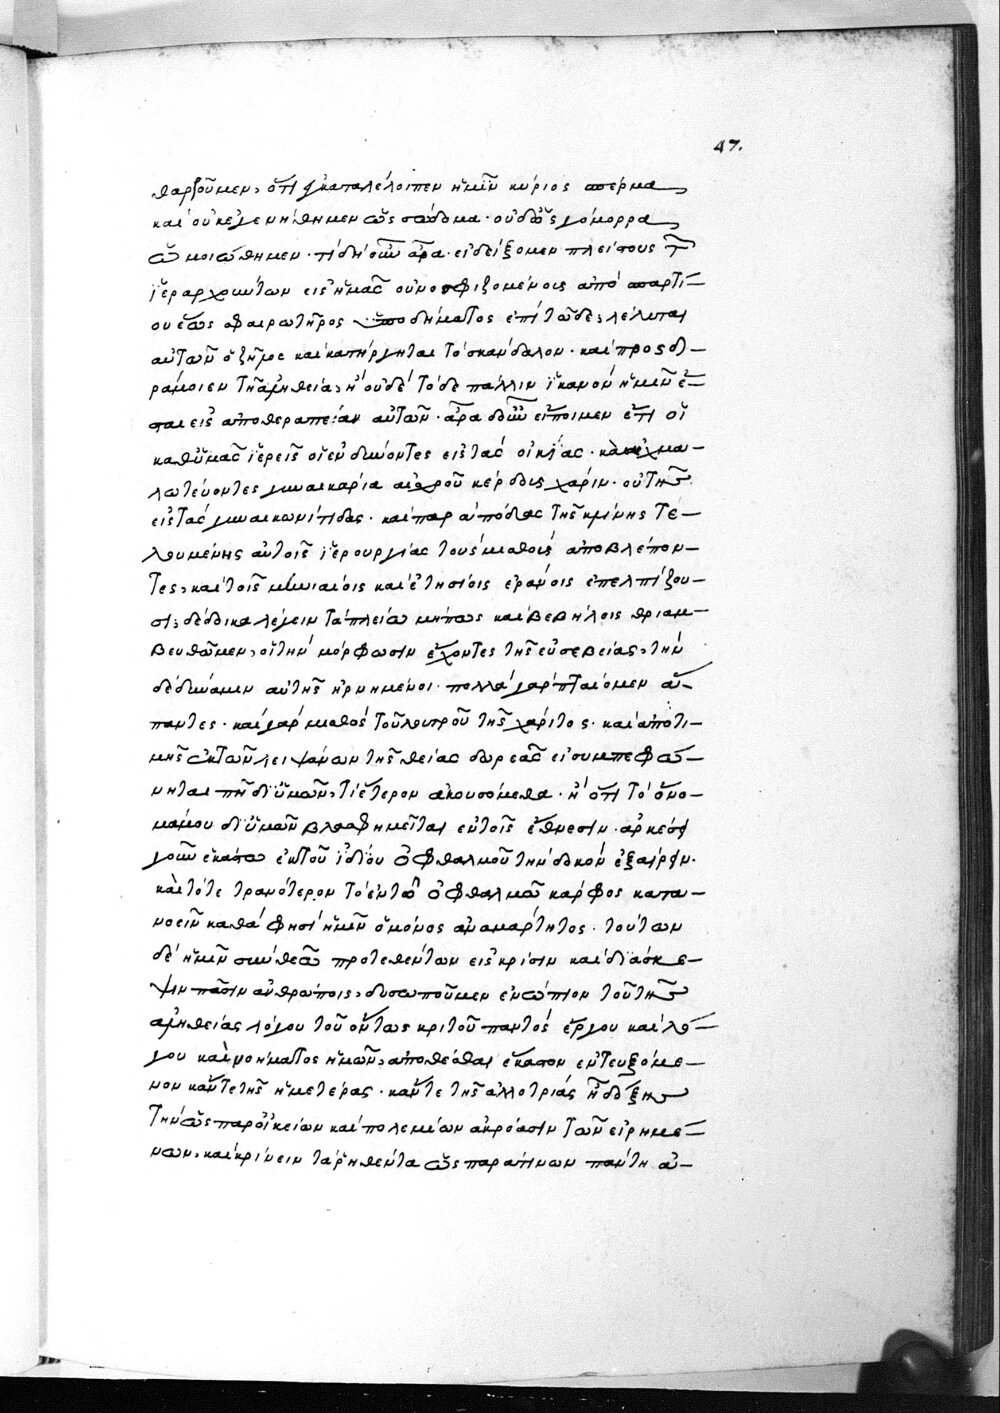 47.
θαρροῦμεν, ὅτι ἐγκαταλέλοιπεν ἡμῖν κύριος σπέρμα,
καὶ οὐκ ἐγενήθημεν ὡς σόδομα· οὐδ' ὡς γόμορρα,
ὡμοιώθημεν· τί δὴ οὖν ἄρα· εἰ δείξομεν πλείστους τῶν
ἱεραρχούντων εἰς ἡμᾶς οὐ νοσφιζομένοις ἀπὸ σπαρτί-
ου ἕως σφαιρωτῆρος ὑποδήματος ἐπὶ τῶδε, λέλυται
αὐτῶν ὁ ζῆλος καὶ κατήργηται τὸ σκάνδαλον· καὶ προσδ-
ράμοιεν τῇ ἀληθείᾳ, ἢ οὐδὲ τόδε πάλιν ἱκανὸν ἡμῖν ἔ-
σται εἰς ἀποθεραπείαν αὐτῶν· ἄρα δ' οὖν εἴποιμεν ἔτι οἱ
καθ' ὑμᾶς ἱερεῖς οἱ ἐνδύνοντες εἰς τὰς οἰκίας· καὶ αἰχμα-
λωτεύοντες γυναικάρια αἰσχροῦ κέρδους χάριν· οὔτ' ἦν
εἰς τὰς γυναικωνίτιδας· καὶ παρ' αἰπόλοις τῆς κλίνης τε-
λουμένης αὐτοῖς ἱερουργίας τοὺς μισθοὺς ἀποβλέπον-
τες, καὶ τοῖς μηνιαίοις καὶ ἐτησίοις ἐράνοις ἐπελπίζου-
σι; δέδοικα λέγειν τὰ πλείω μήπως καὶ βεβήλοις θριαμ-
βευθῶμεν, οἱ τὴν μόρφωσιν ἔχοντες τῆς εὐσεβείας, τὴν
δὲ δύναμιν αὐτῆς ἠρνημένοι· πολλὰ γὰρ πταίομεν ἅ-
παντες· καὶ γὰρ μισθὸς τοῦ λουτροῦ τῆς χάριτος· καὶ ἀποτι-
μῆς ἐκ τῶν λειψάνων τῆς θείας δωρεᾶς εἰ συμπεφώ-
νηται πῆ δι' ὑμῶν, τί ἕτερον ἀκουσόμεθα· ἢ ὅτι τὸ ὄνο-
μά μου δι' ὑμῶν βλασφημεῖται ἐν τοῖς ἔθνεσιν· ἀρκέσει
γοῦν ἑκάστω ἐκ τοῦ ἰδίου ὀφθαλμοῦ τὴν δοκὸν ἐξαίρειν·
καὶ τότε τρανότερον τὸ ἐν τῶ ὀφθαλμοῦ κάρφος κατα-
νοεῖν καθά φησιν ἡμῖν ὁ μόνος ἀναμάρτητος· τούτων
δὲ ἡμῖν σὺν θεῶ προτεθέντων εἰς κρίσιν καὶ διάσκε-
ψιν πᾶσιν ἀνθρώποις, δυσωποῦμεν ἐνώπιον τοῦ τῆς
ἀληθείας λόγου τοῦ ὄντως κριτοῦ παντὸς ἔργου καὶ λό-
γου καὶ νοήματος ἡμῶν, ἀποθέσθαι ἕκαστον ἐντευξόμε-
νον κἄν τε τῆς ἡμετέρας· κἄν τε τῆς ἀλλοτρίας ᾖ δόξης
τὴν ὡς παρ' οἰκείων καὶ πολεμίων ἀκρόασιν τῶν εἰρημέ-
νων, καὶ κρίνειν τὰ ῥηθέντα ὡς παρά τινων πάντη ἀ-